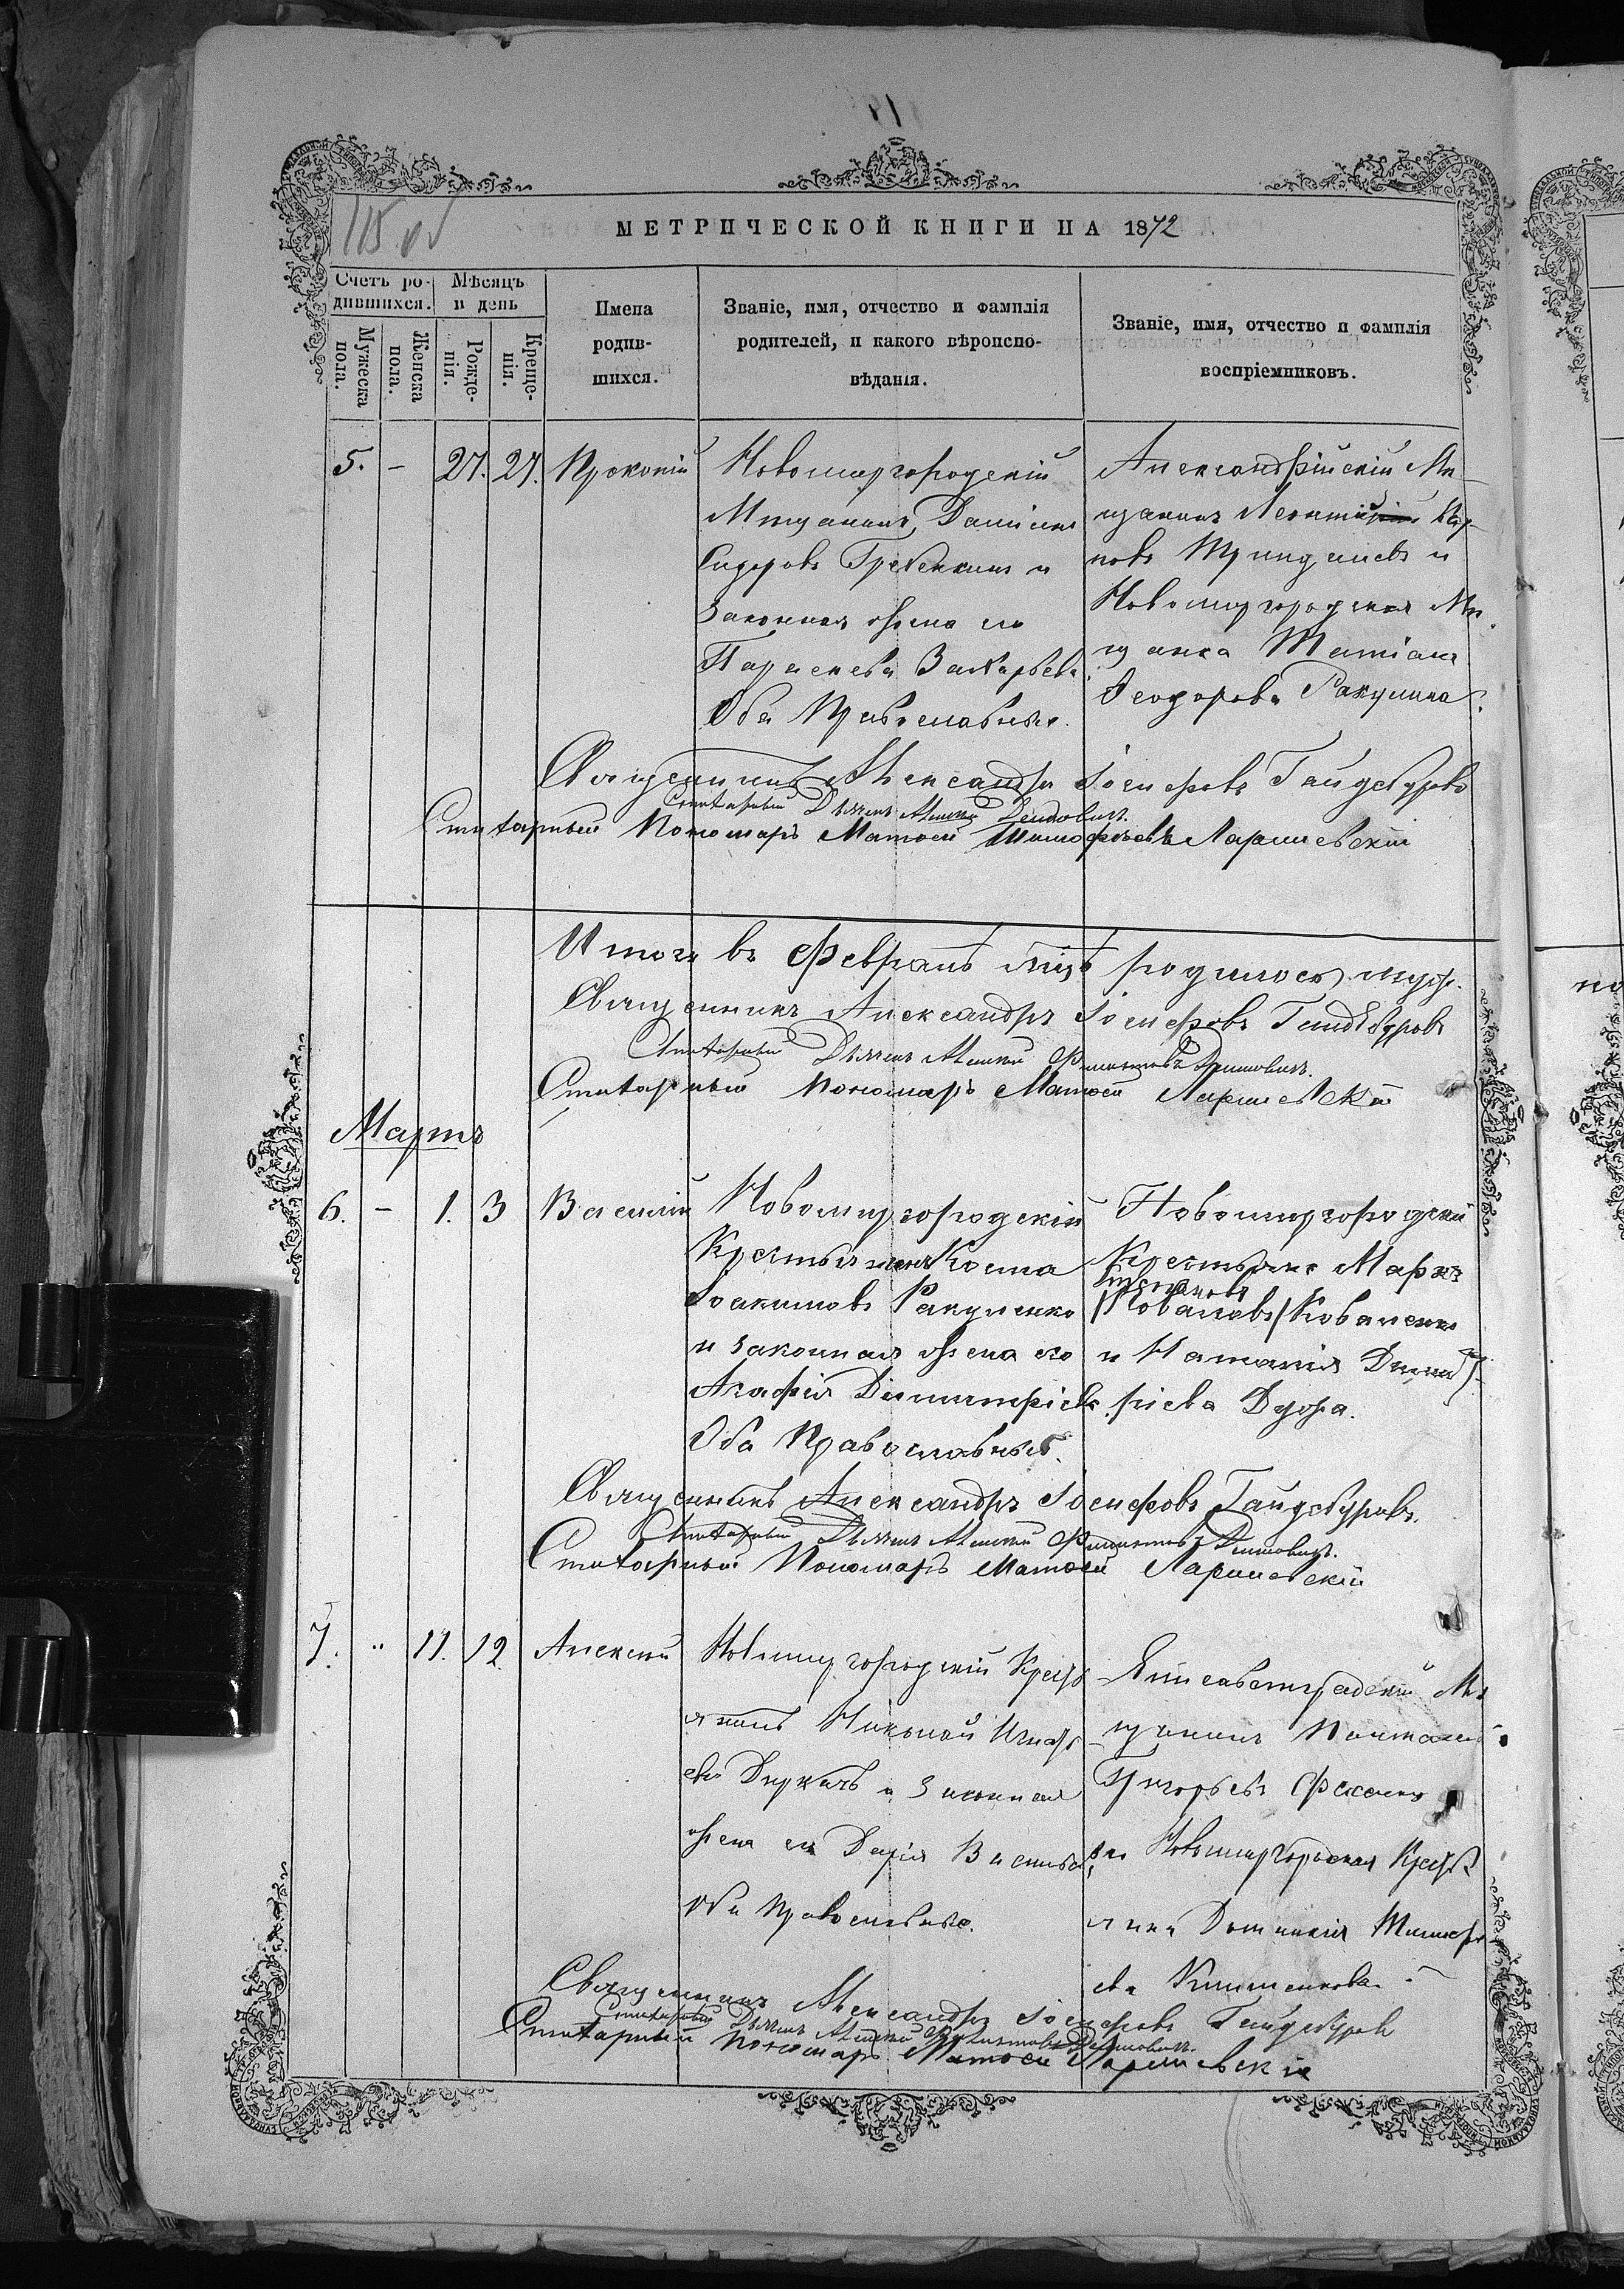 115 об
МЕТРИЧЕСКОЙ КНИГИ НА 1872
Счетъ ро-
дившихся.
Мѣсяцъ
и день
Мужеска
пола.
Женска
пола.
Рожде-
нія.
Креще-
нія.
Имена
родив-
шихся.
Званіе, имя, отчество и фамилія
родителей, и какого вѣроиспо-
вѣданія.
Званіе, имя, отчество и фамилія
воспріемниковъ.
5. - 27. 27. Прокопій
Новомиргородскій
Мѣщанинъ
Сидоровъ Гребенкинъ и
Законная жена его
Параскева Захарьева
Оба Православные.
Александрійскій Мѣ-
щанинъ Леонтій
и
Новомиргородская Мѣ-
щанка Татіана
Феодорова Ракулина.
Священникъ Александръ Іосифовъ Гайдебуровъ
Стихарный Дьячекъ
Стихарный Пономарь Матѳей Тимофеевъ Ларшевскій
Итого въ Февралѣ мцѣ родилось муж.
Священникъ Александръ Іосифовъ Гайдебуровъ
Стихарный Дьячекъ
Стихарный Пономарь Матѳей Ларшевскій
Мартъ
6. - 1. 3 Василій
Новомиргородскій
Крестьянинъ Косма
Іоакимовъ Ракуленко
и законная жена его
Агафія Димитріева.
Оба Православные.
Новомиргородскій
Крестьяне Маркъ
Степановъ
/Ковалевъ/ Коваленко
и Наталія Димит-
ріева Дура.
Священникъ Александръ Іосифовъ Гайдебуровъ.
Стихарный Дьячекъ
Стихарный Пономарь Матѳей Ларшевскій
7. " 11. 12. Алексій
Новомиргородскій Кресть
янинъ Николай Игнать
евъ Деркачъ и Законная
жена его Дарія Васильева
Оба Православные.
Елисаветградскій Мѣ
щанинъ
Григорьевъ
и Новомиргородская Кресть
янка Домникія Тимофе
ева
Священникъ Александръ Іосифовъ Гайдебуровъ
Стихарный Дьячекъ
Стихарный Пономарь Матѳей Ларшевскій